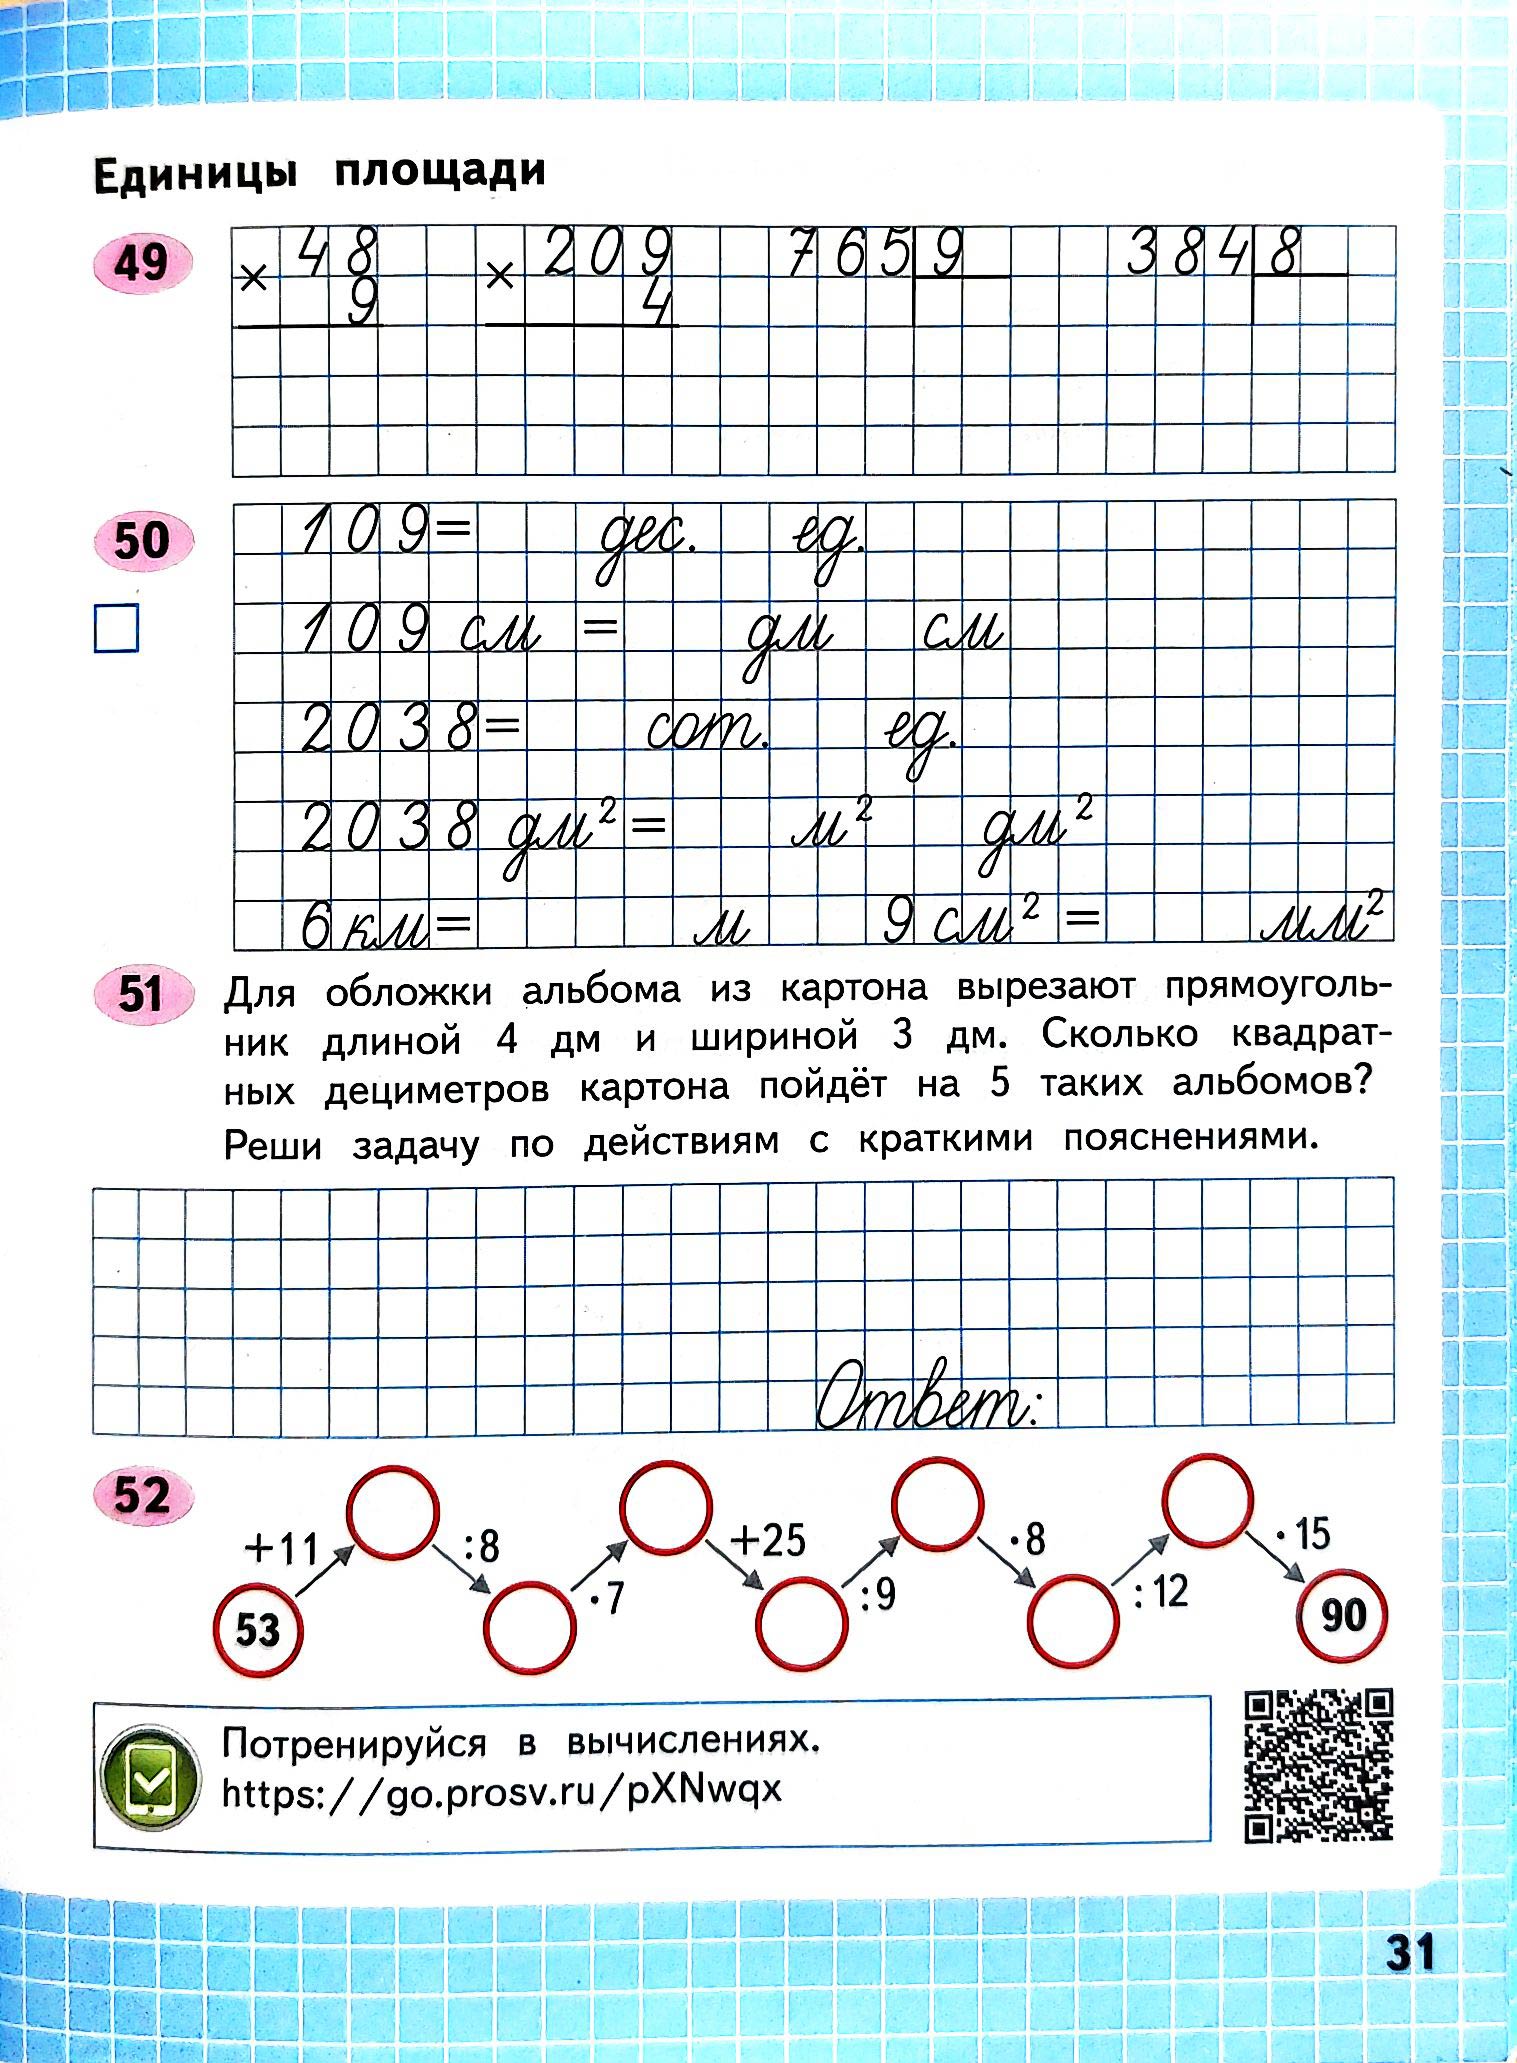 Единицы площади
49
× 48 × 209 765 9 384 8
9 4
50
109= дес. ед.
109 см = дм см
2038= сот. ед.
2038 дм² = м² дм²
6 км= м 9 см² = мм²
51 Для обложки альбома из картона вырезают прямоуголь-
ник длиной 4 дм и шириной 3 дм. Сколько квадрат-
ных дециметров картона пойдёт на 5 таких альбомов?
Реши задачу по действиям с краткими пояснениями.
Ответ:
52
+11 :8 +25 ·8 ·15
53 ·7 :9 :12 90
Потренируйся в вычислениях.
https://go.prosv.ru/pXNwqx
31